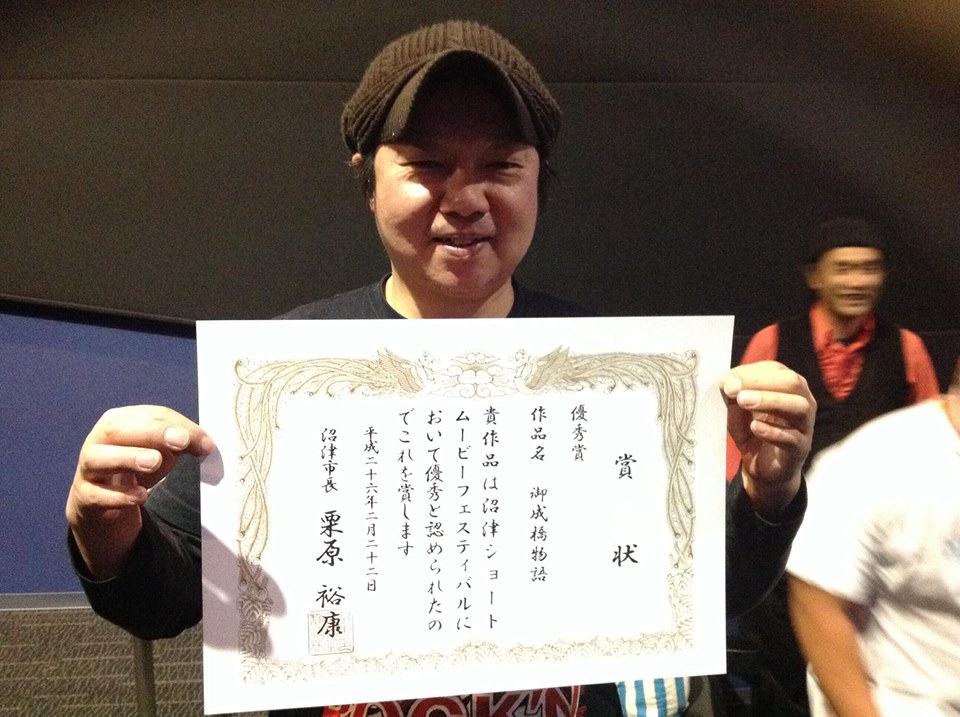 賞状
優秀賞
作品名 御成橋物語
貴作品は沼津ショート
ムービーフェスティバルに
おいて優秀と認められたの
でこれを賞します
平成二十六年二月二十二日
沼津市長 栗原 裕康
OCK'N